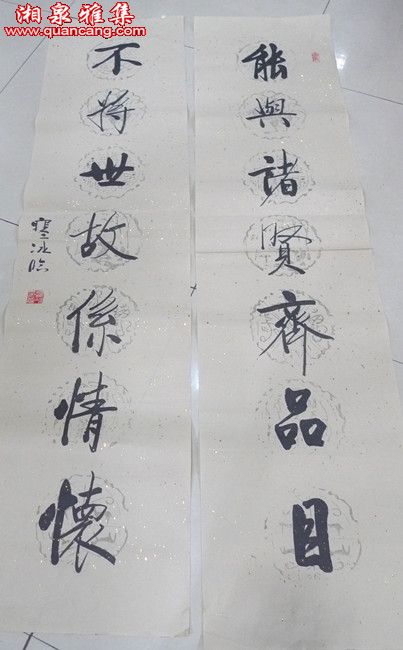 湘泉雅集
www.quancang.com
能與諸賢齊品目
不將世故係情懷
寒冰臨